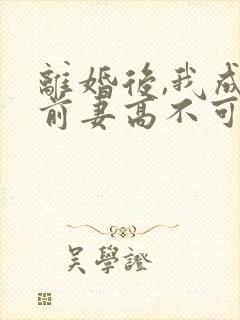 離婚後,我成
前妻高不可
吳學證